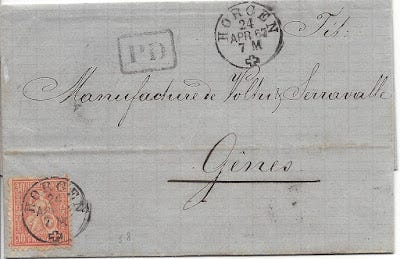 HORGEN
24
APR 67
7 M
Tit:
PD
Manufacture de Voltri & Serravalle
Gênes
HORGEN
30